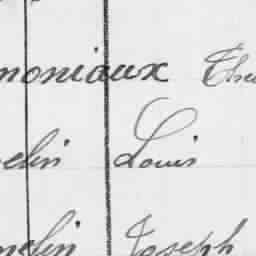 moniaux
elin Louis
melin Joseph